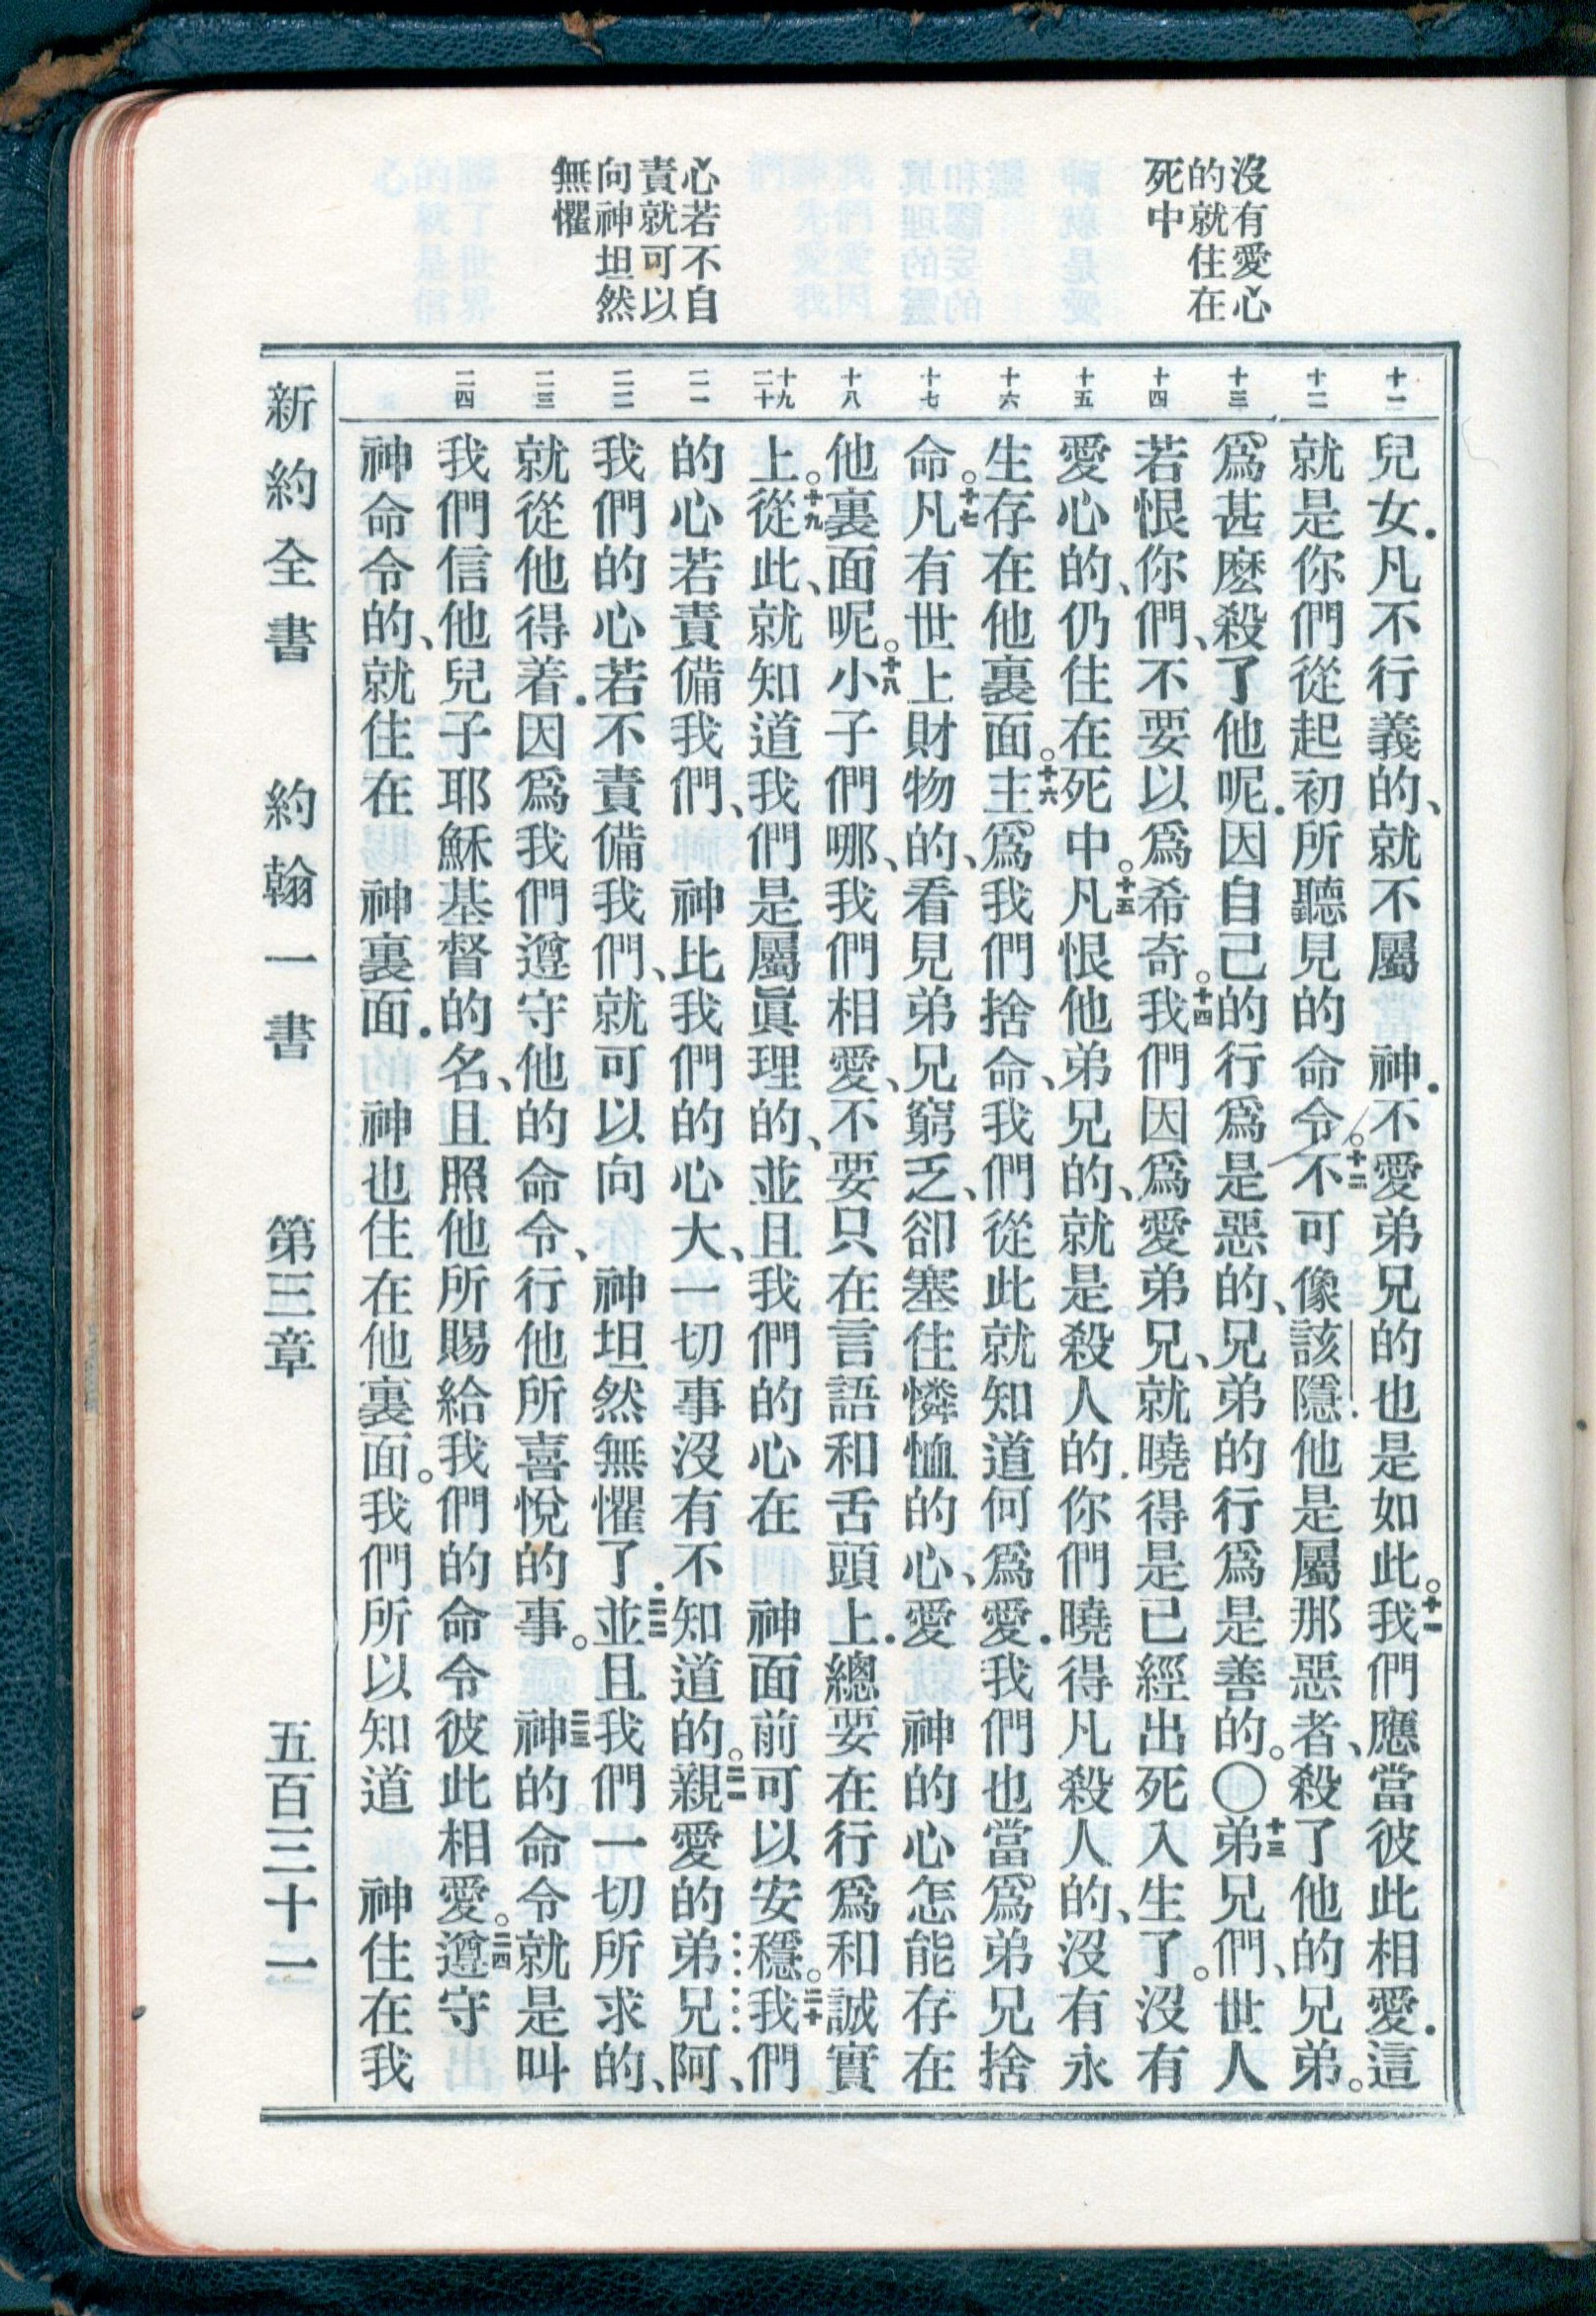 沒有愛心
的就住在
死中
心若不自
責就可以
向神坦然
無懼
十一
十二
十三
十四
十五
十六
十七
十八
十九
二十
二一
二二
二三
二四
兒女．凡不行義的、就不屬　神．不愛弟兄的也是如此。十一我們應當彼此相愛．這
就是你們從起初所聽見的命令。十二不可像該隱．他是屬那惡者、殺了他的兄弟。
爲甚麽殺了他呢．因自己的行爲是惡的、兄弟的行爲是善的。〇十三弟兄們、世人
若恨你們、不要以爲希奇。十四我們因爲愛弟兄、就曉得是已經出死入生了。沒有
愛心的、仍住在死中。十五凡恨他弟兄的、就是殺人的．你們曉得凡殺人的、沒有永
生存在他裏面。十六主爲我們捨命、我們從此就知道何爲愛．我們也當爲弟兄捨
命。十七凡有世上財物的、看見弟兄窮乏、卻塞住憐恤的心、愛　神的心怎能存在
他裏面呢。十八小子們哪、我們相愛、不要只在言語和舌頭上．總要在行爲和誠實
上。十九從此、就知道我們是屬眞理的、並且我們的心在　神面前可以安穩。二十我們
的心若責備我們、　神比我們的心大、一切事沒有不知道的。二一親愛的弟兄阿、
我們的心若不責備我們、就可以向　神坦然無懼了．二二並且我們一切所求的、
就從他得着．因爲我們遵守他的命令、行他所喜悅的事。二三　神的命令就是叫
我們信他兒子耶穌基督的名、且照他所賜給我們的命令彼此相愛。二四遵守
神命令的、就住在　神裏面．　神也住在他裏面。我們所以知道　神住在我
新約全書　約翰一書　第三章　五百三十一